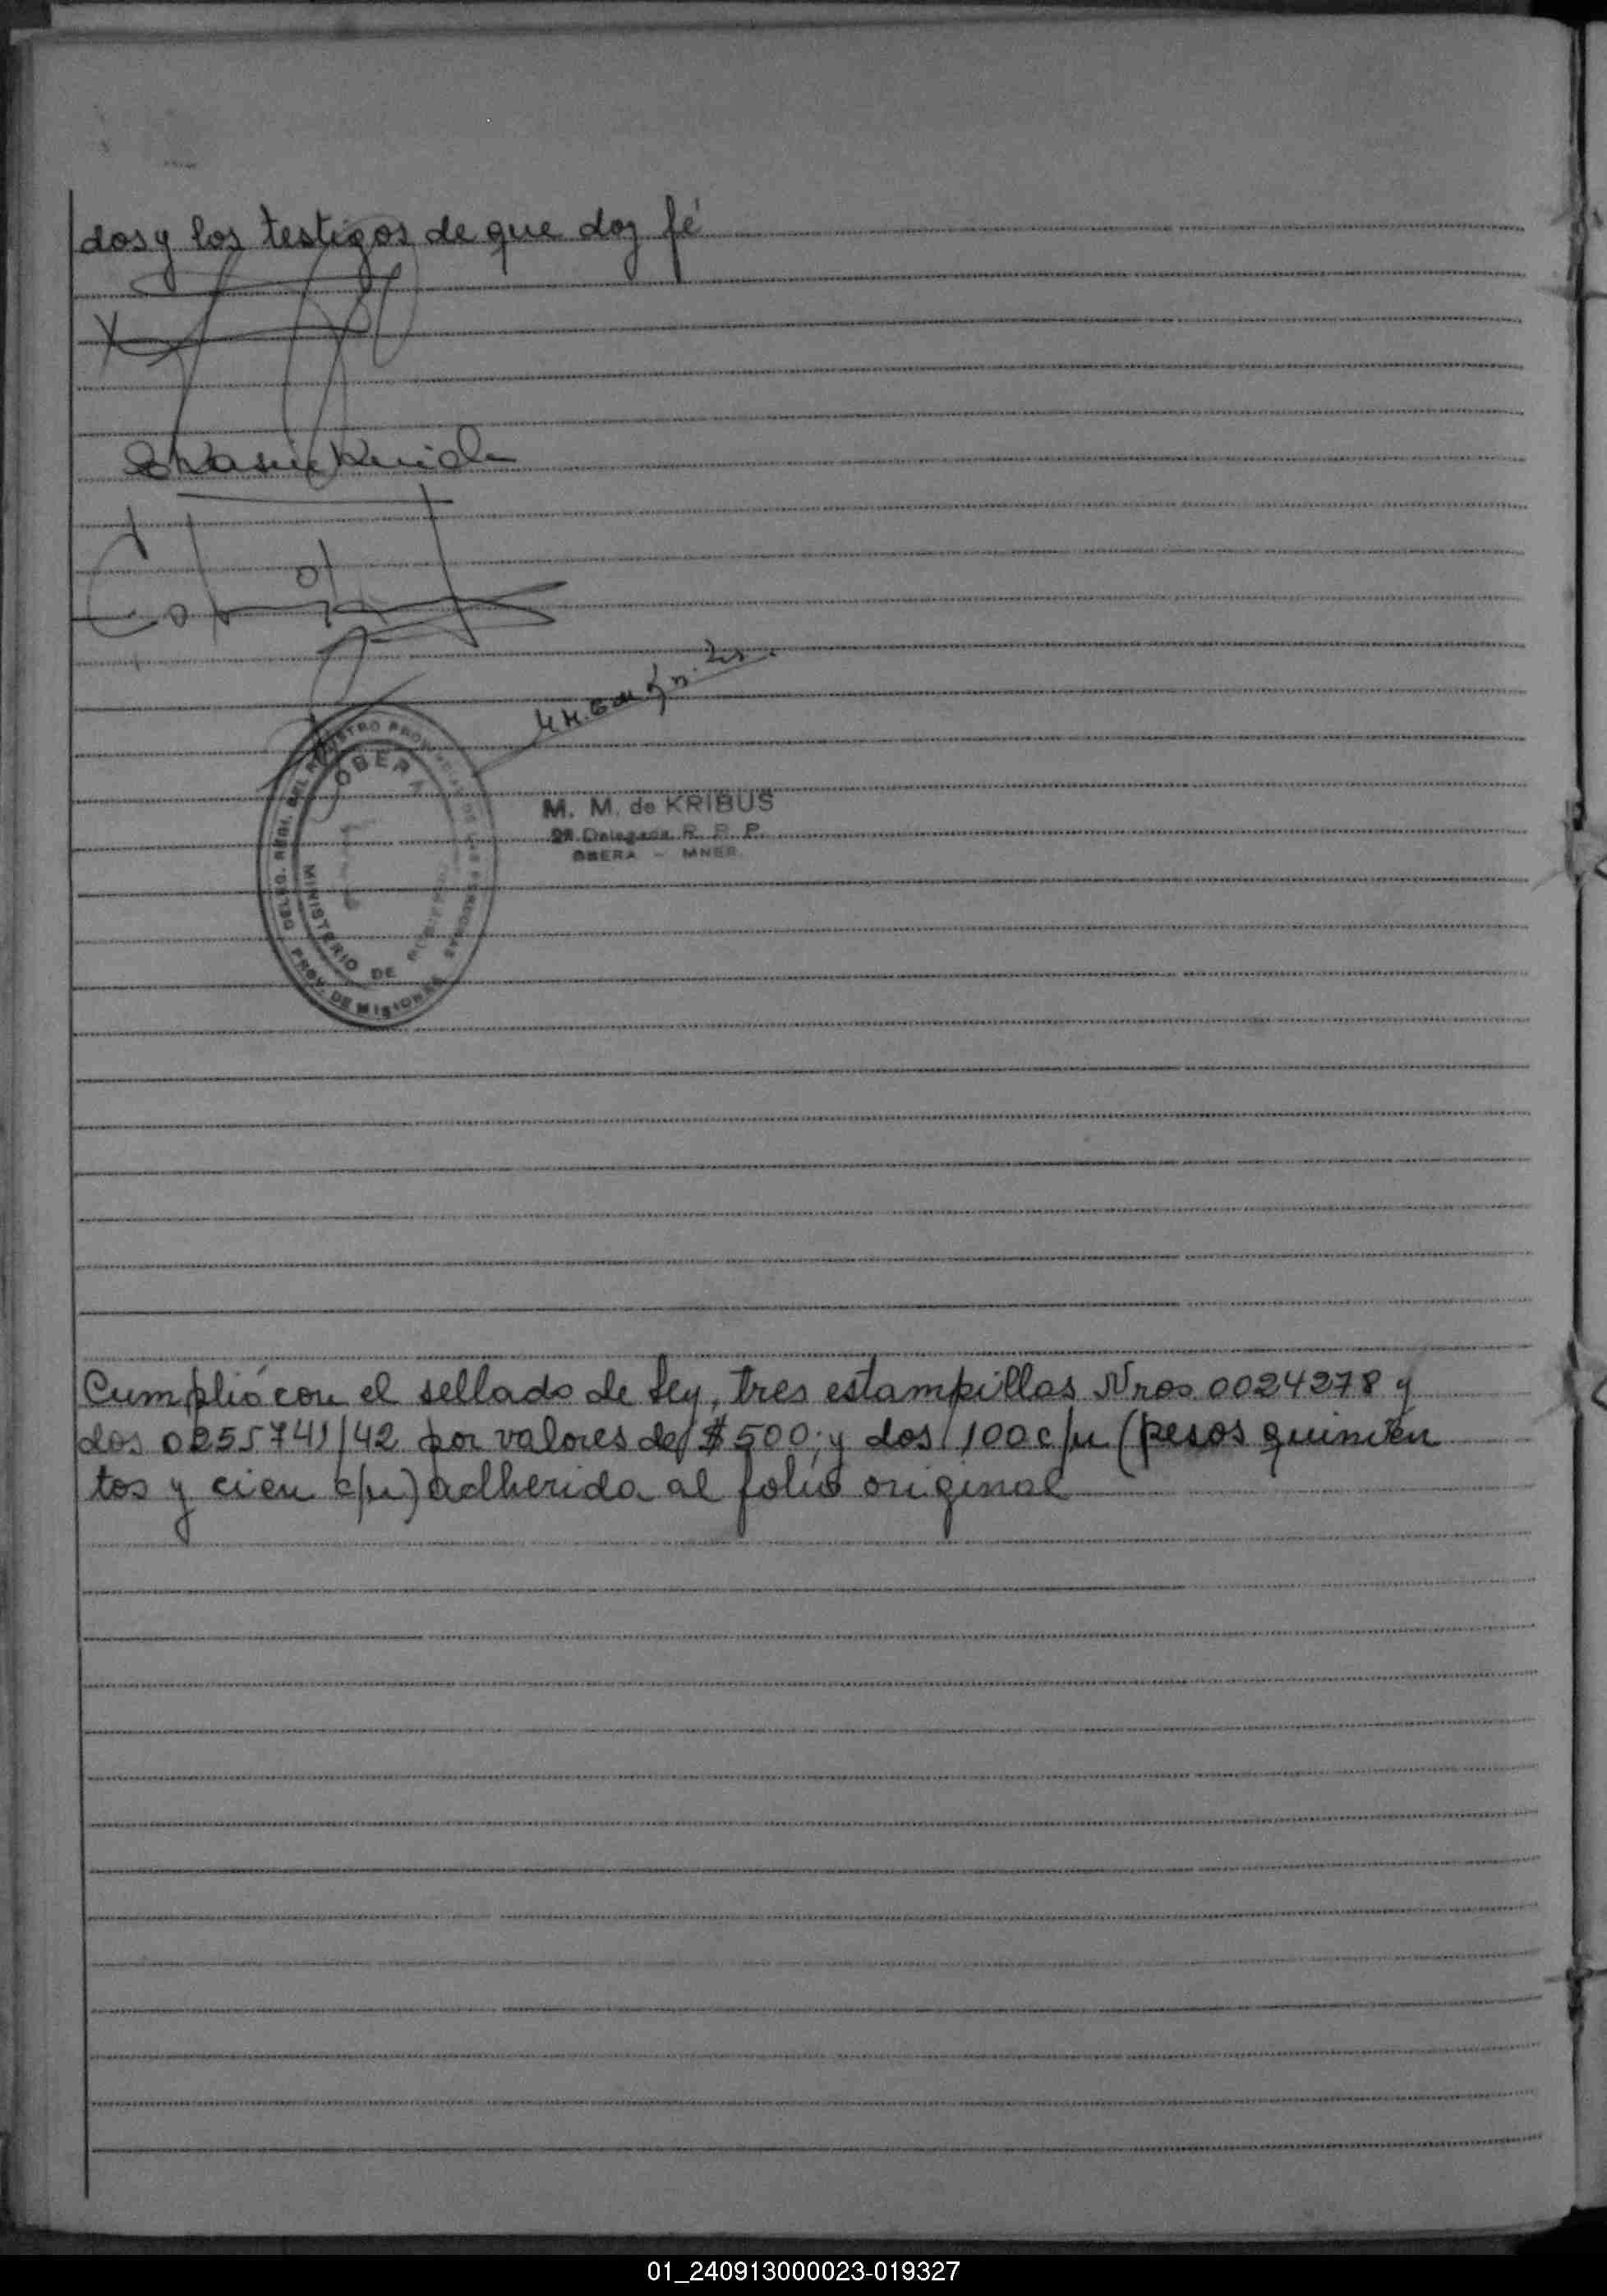 dos y los testigos de que doy fé
OBERA
DELEG. REGI. DEL REGISTRO PROVINCIAL DE LAS PERSONAS
MINISTERIO DE GOBIERNO
PROV. DE MISIONES
M. M. de KRIBUS
2ª Delegada R. P. P.
OBERA - MNES.
Cumplió con el sellado de Ley, tres estampillas Nros 0024278 y
dos 0255741/42 por valores de $ 500; y dos 100 c/u (pesos quinien
tos y cien c/u) adherida al folio original
01_240913000023-019327